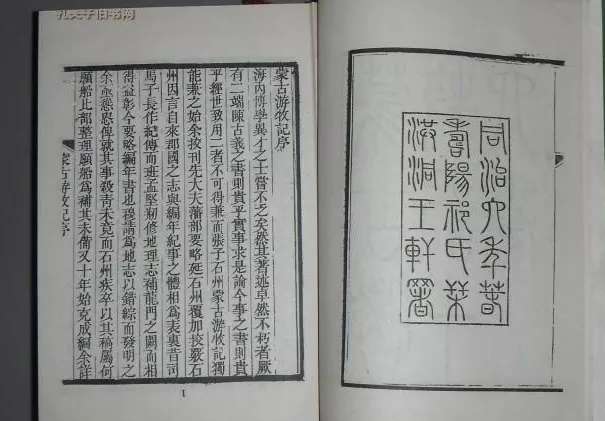 孔夫子旧书网
同治六年萅
壽陽祁氏栞
洪洞王軒署
蒙古游牧記序
海內博學異才之士嘗不乏矣然其著述卓然不朽者厥
有二端陳古義之書則貴乎實事求是論今事之書則貴
乎經世致用二者不可得兼而張子石州蒙古游牧記獨
能兼之始余校刊先大夫藩部要略延石州覆加校覈石
州因言自來郡國之志與編年紀事之體相爲表裏昔司
馬子長作紀傳而班孟堅剏修地理志補龍門之闕而相
得益彰今要略編年書也穆請爲地志以錯綜而發明之
余亟慫恿俾就其事殺青未竟而石州疾卒以其稿屬何
願船比部整理願船爲補其未備又十年始克成編余詳
蒙古游牧記序
1